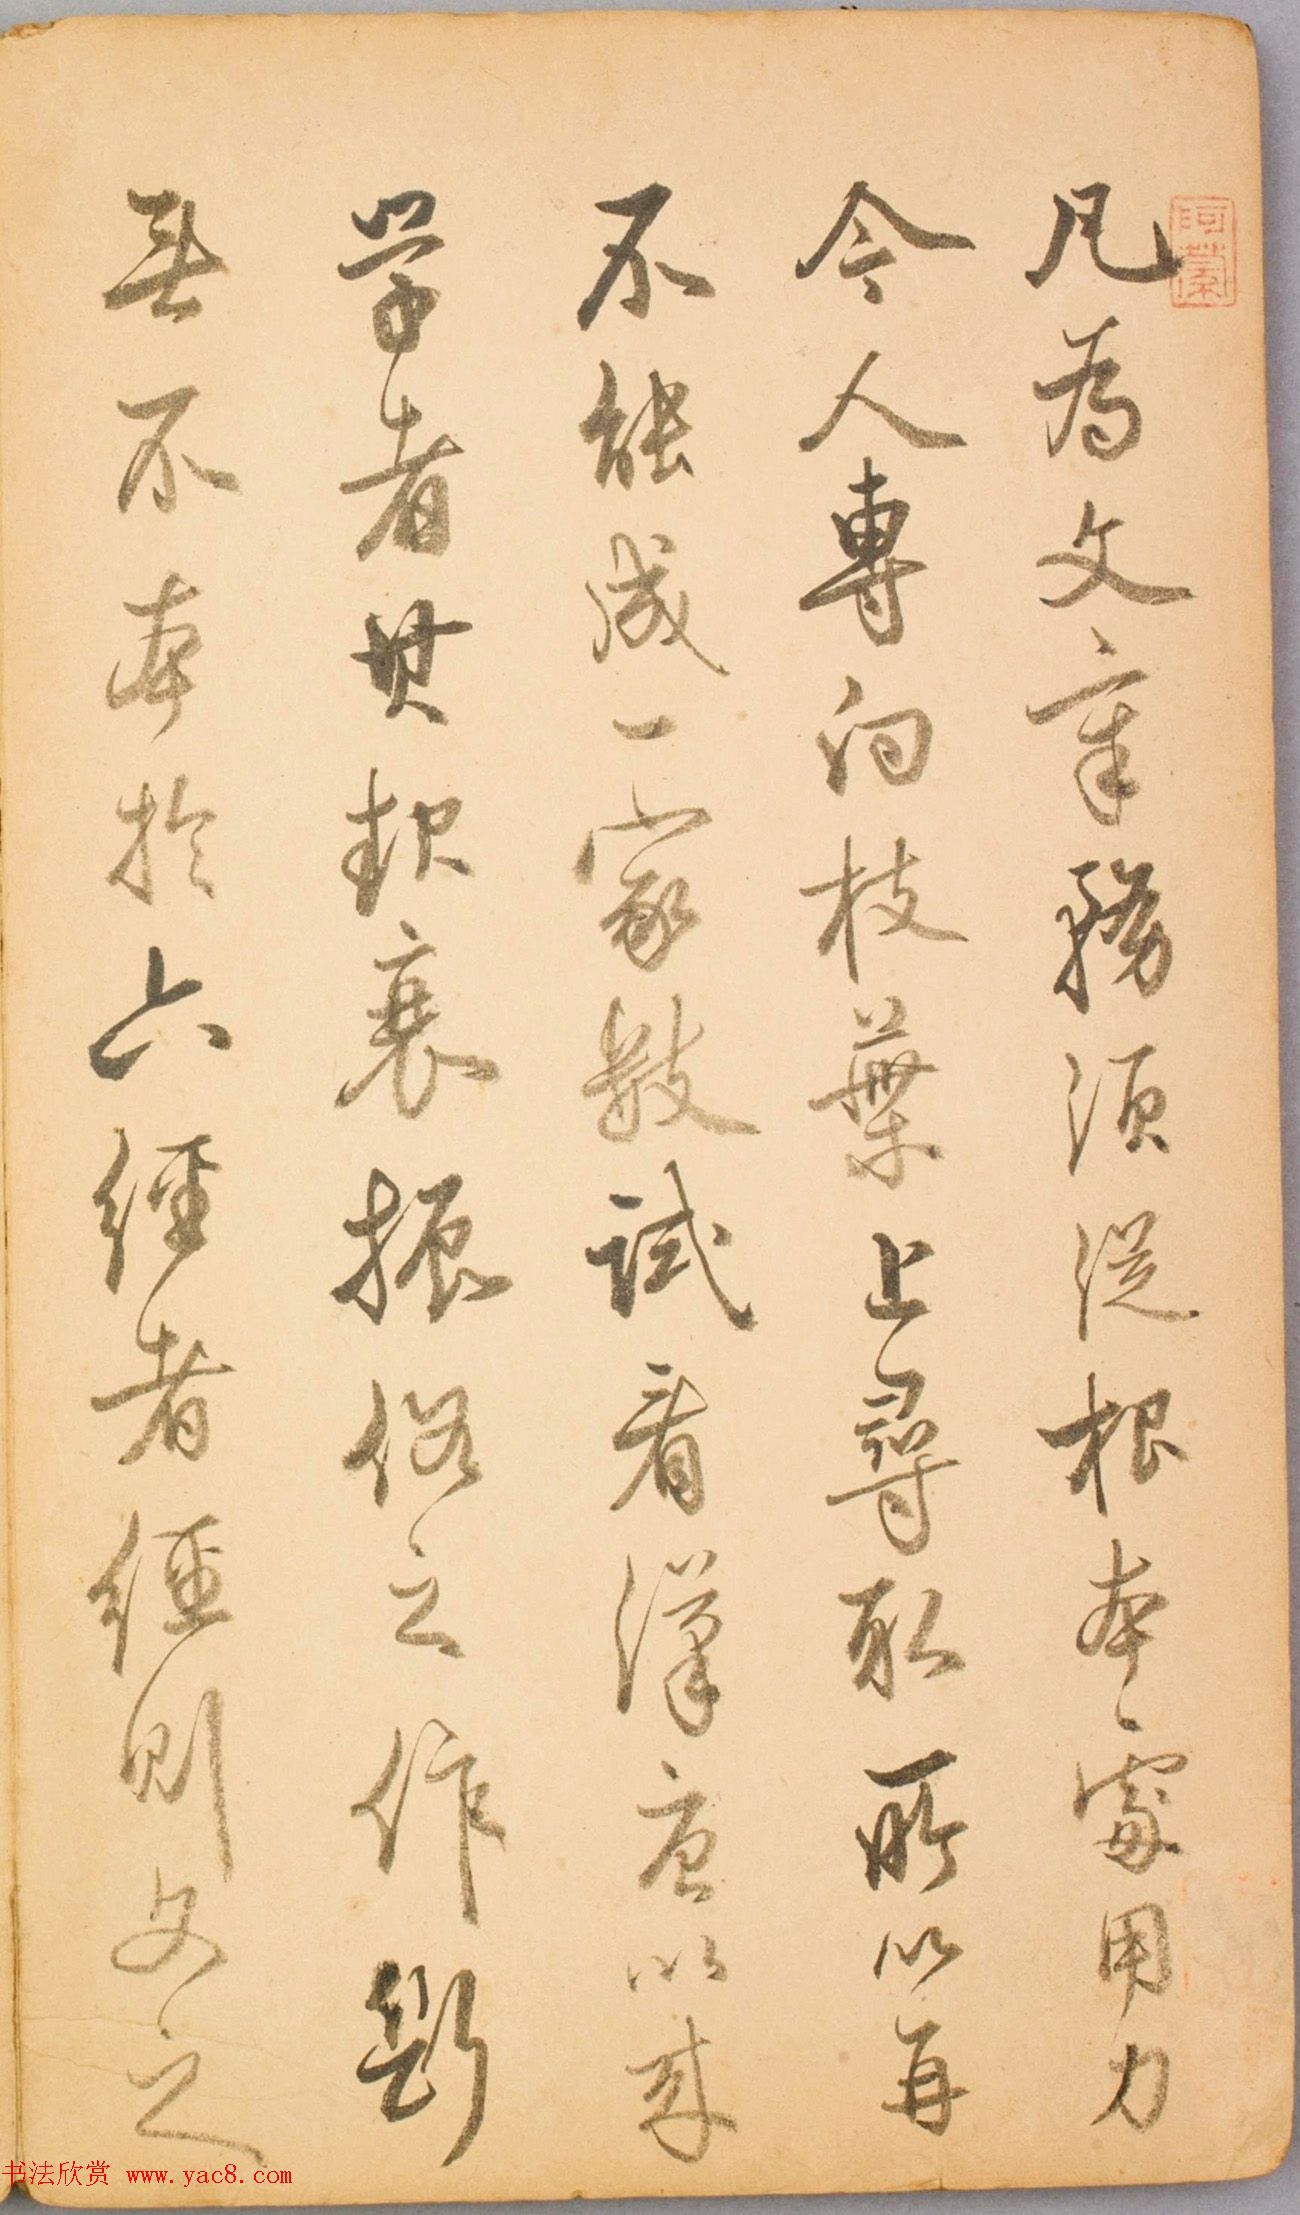 凡為文章務須從根本處用力
今人專向枝葉上尋取所以再
不能成一家數試看漢唐以來
學者其起衰振俗之作斷
無不本於六經者經則文之
書法欣赏 www.yac8.com